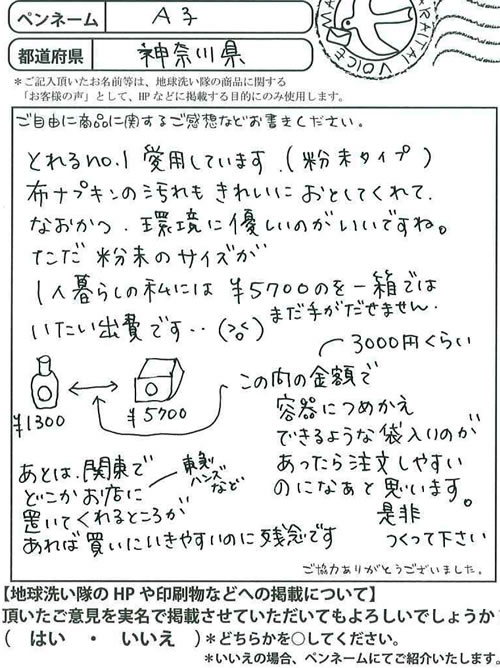 ペンネーム A子
都道府県 神奈川県
MA
ARAITAI VOICE
*ご記入頂いたお名前等は、地球洗い隊の商品に関する
「お客様の声」として、HPなどに掲載する目的にのみ使用します。
ご自由に商品に関するご感想などお書きください。
とれるno.1 愛用しています.(粉末タイプ)
布ナプキンの汚れもきれいにおとしてくれて、
なおかつ、環境に優しいのがいいですね。
ただ粉末のサイズが
1人暮らしの私には ¥5700のを一箱では
まだ手がだせません.
いたい出費です‥(>o<)
3000円くらい
¥1300
¥5700
この内の金額で
容器につめかえ
できるような袋入りのが
あったら注文しやすい
のになあと思います。
是非
つくって下さい
あとは、関東で
どこかお店に
東急
ハンズ
など
置いてくれるところが
あれば買いにいきやすいのに残念です
ご協力ありがとうございました。
【地球洗い隊のHPや印刷物などへの掲載について】
頂いたご意見を実名で掲載させていただいてもよろしいでしょうか
( はい ・ いいえ )*どちらかを○してください。
*いいえの場合、ペンネームにてご紹介いたします。